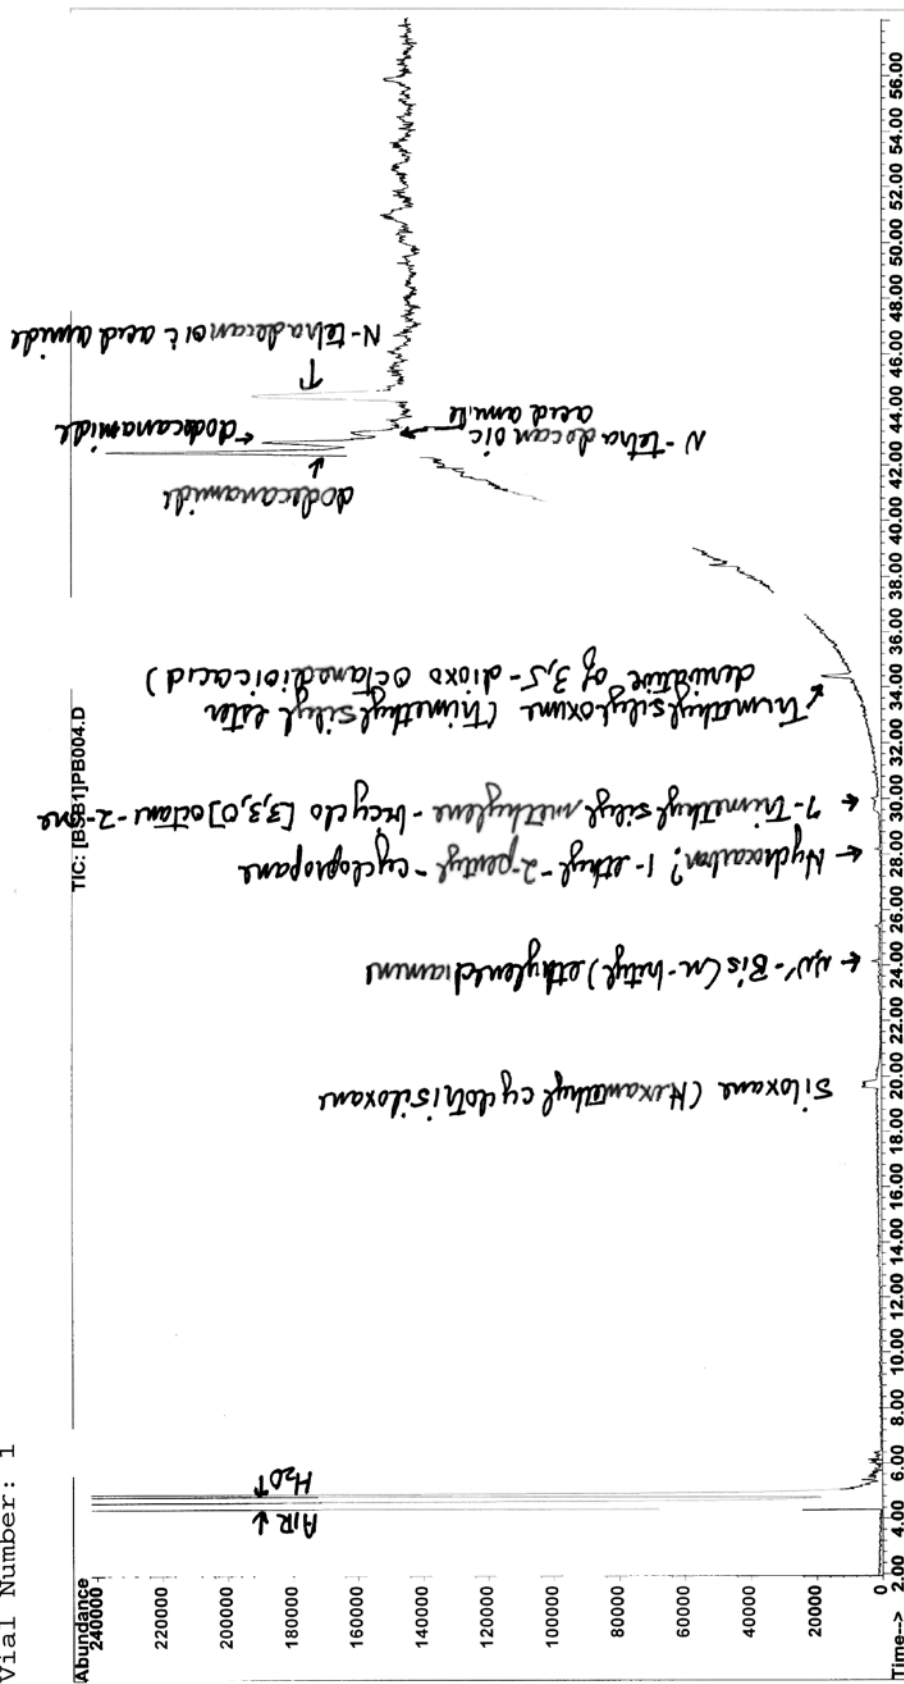 Vial Number: 1
Abundance
TIC: [BSB1]PB004.D
240000
220000
200000
180000
160000
140000
120000
100000
80000
60000
40000
20000
0
Time-->
2.00 4.00 6.00 8.00 10.00 12.00 14.00 16.00 18.00 20.00 22.00 24.00 26.00 28.00 30.00 32.00 34.00 36.00 38.00 40.00 42.00 44.00 46.00 48.00 50.00 52.00 54.00 56.00
AIR
H2O
Siloxane (Hexamethyl cyclotrisiloxane
N,N'-Bis(n-butyl) ethylenediamine
Hydrocarbon? 1-ethyl-2-pentyl-cyclopropane
7-Trimethylsilyl methylene-bicyclo [3,3,0]octane-2-one
Trimethylsilyloxime (Trimethylsilyl ester
derivative of 3,5-dioxo octanedioic acid)
dodecanamide
dodecanamide
N-tetradecanoic
acid amide
N-tetradecanoic acid amide